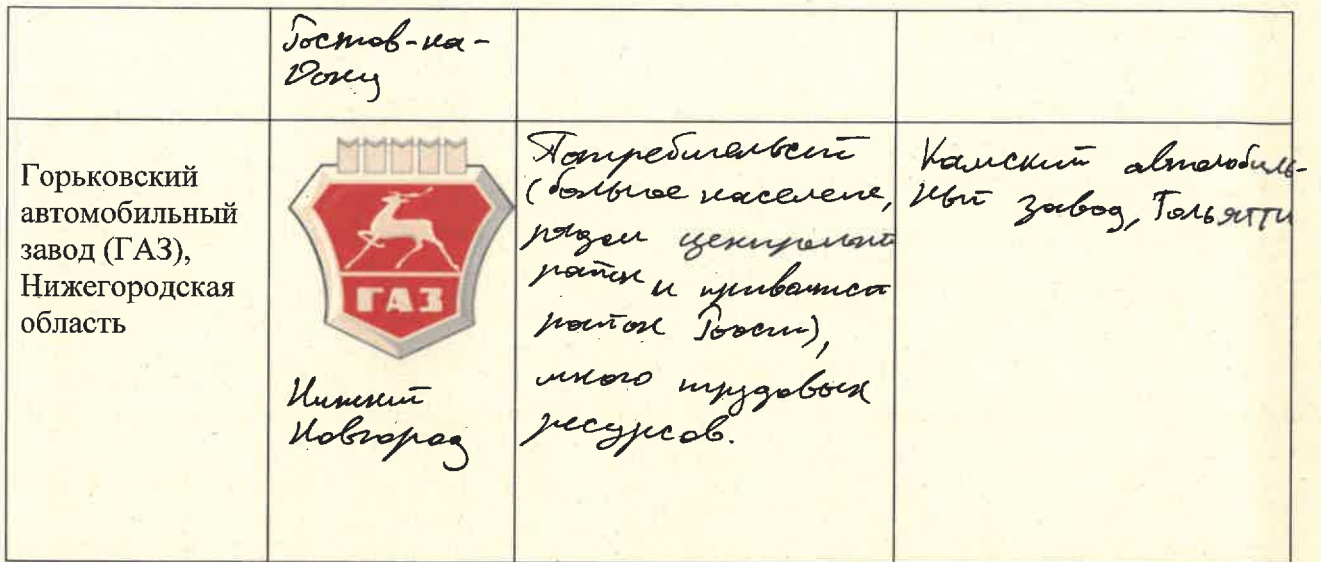 Ростов-на-
Дону
Горьковский
автомобильный
завод (ГАЗ),
Нижегородская
область
ГАЗ
Нижний
Новгород
Потребительский
(большое населене,
рядом центральный
район и
район России),
много трудовых
ресурсов.
Камский автомобиль-
ный завод, Тольятти